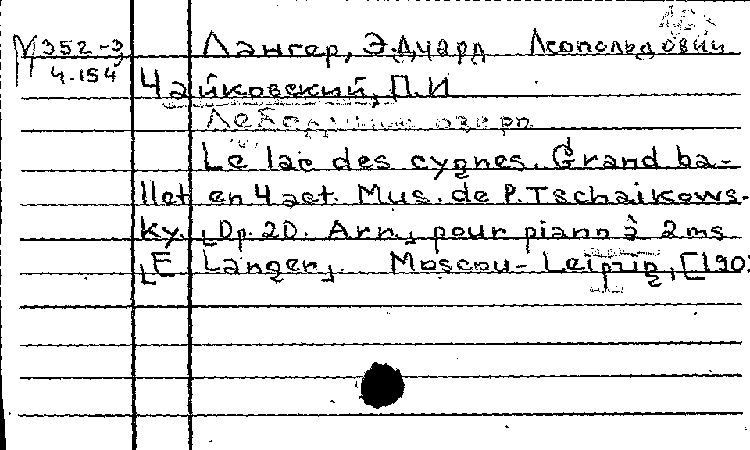 М 352-3
Ч-154
Лангер, Эдуард Леопольдович
Чайковский, П.И
Лебединое озеро
Le lac des cygnes. Grand ba-
llet en 4 act. Mus. de P. Tschaikows-
ky. [Op. 20. Arr.] pour piano à 2 ms
[E Langer]. Moscou-Leipzig, [190